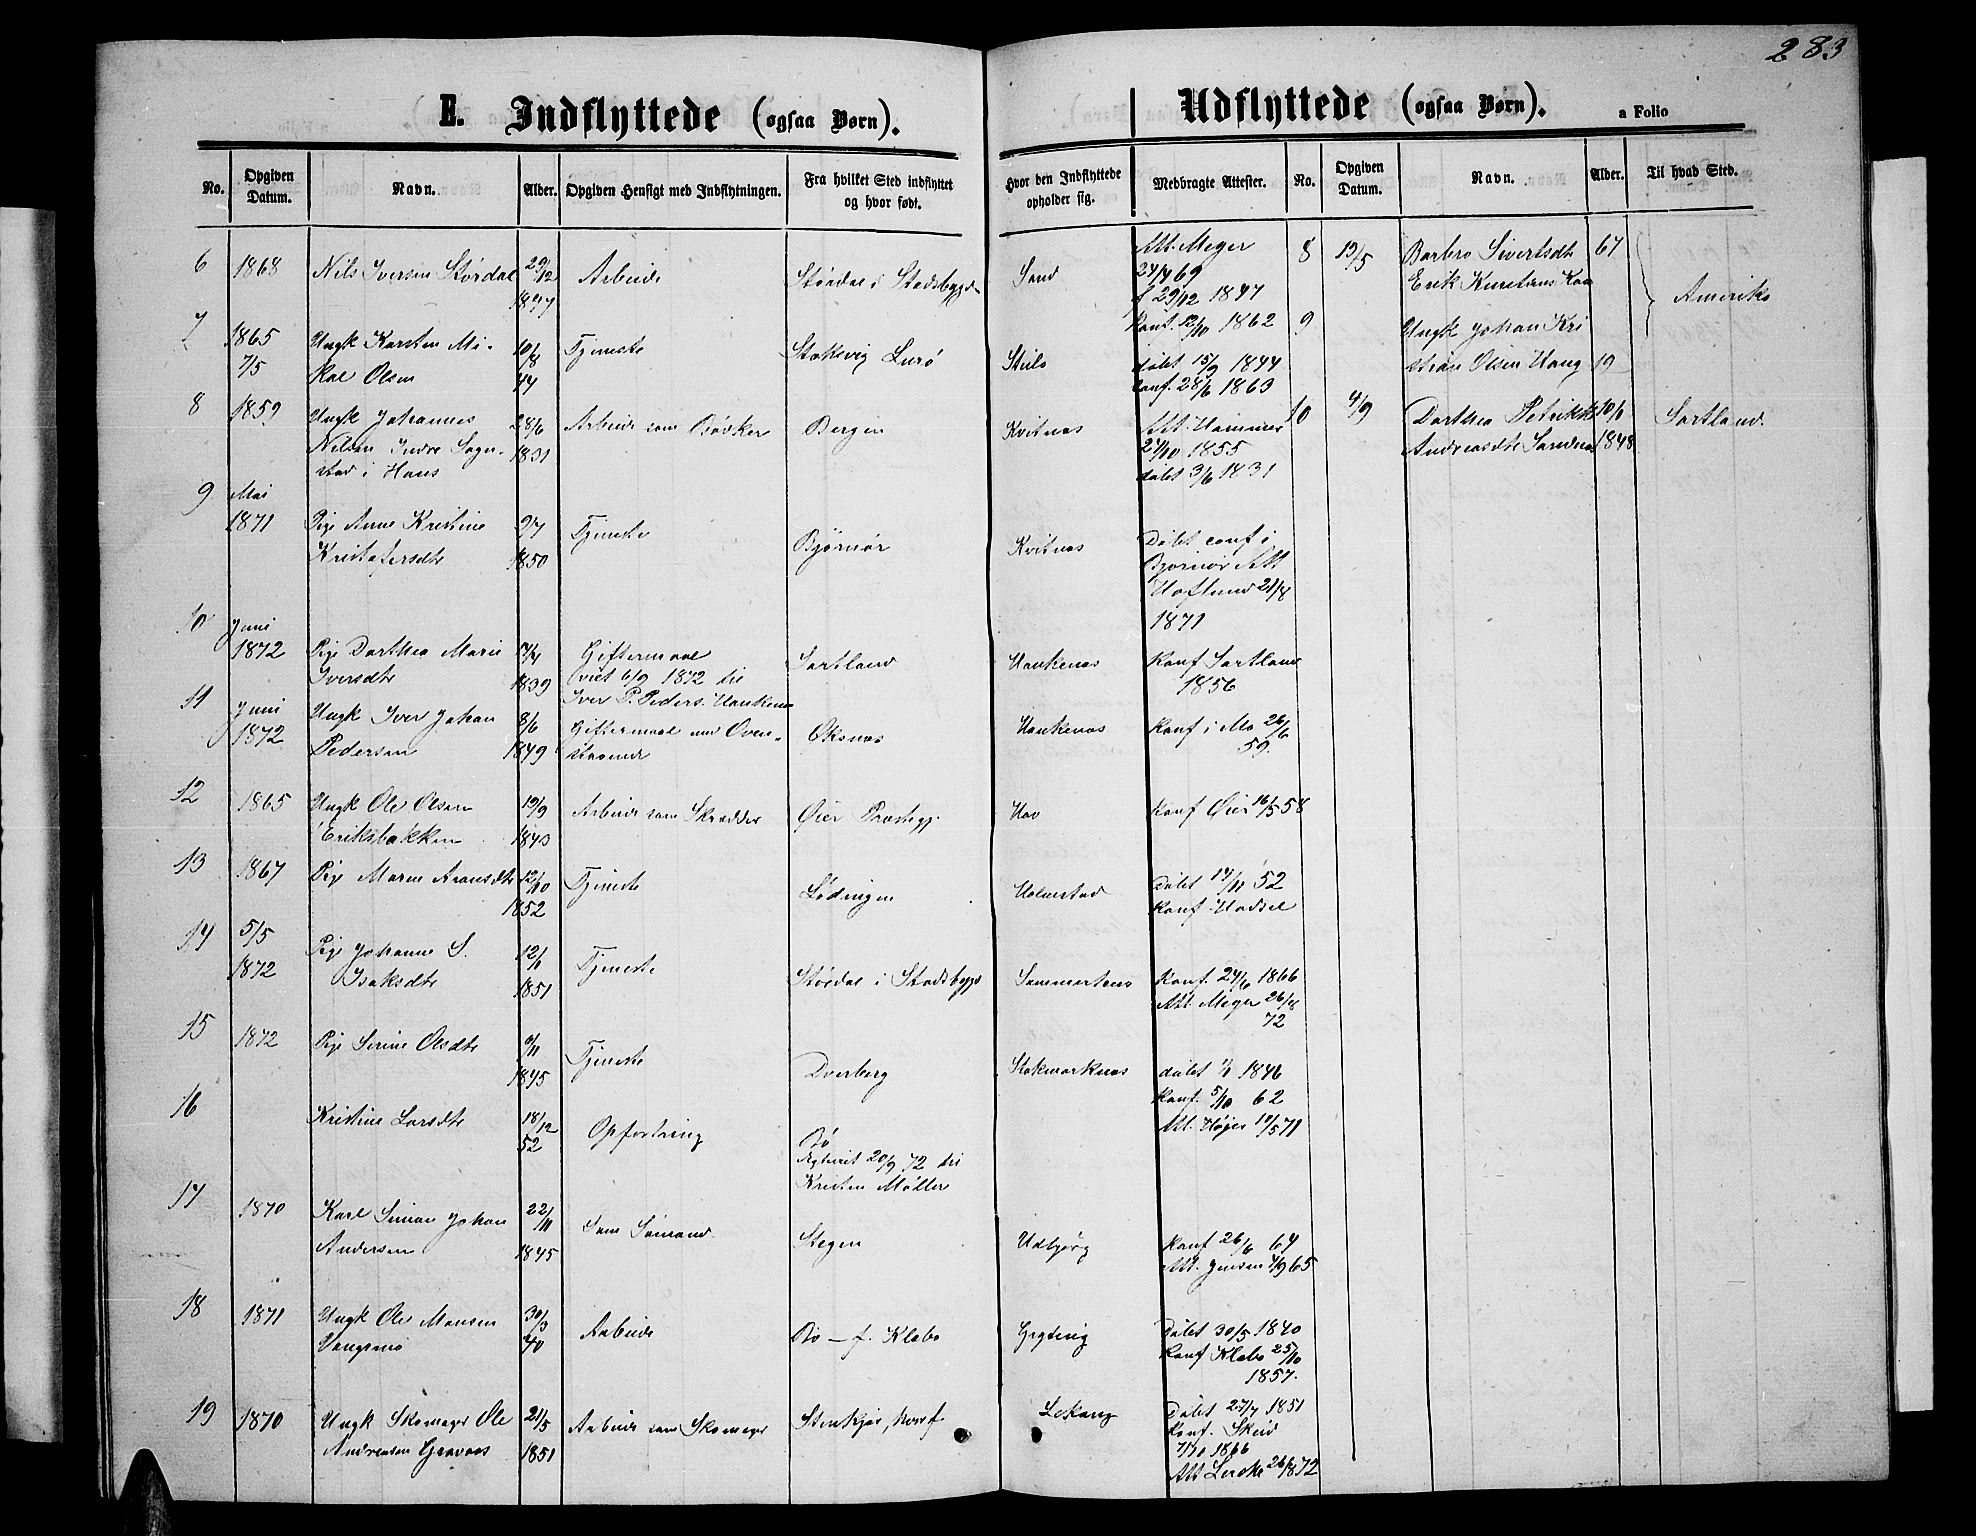 283
E. Indflyttede (ogsaa Børn).
Udflyttede (ogsaa Børn).
a Folio
No. Opgiven Datum. Navn. Alder. Opgiven Hensigt med Indflytningen. Fra hvilket Sted indflyttet og hvor født. Hvor den Indflyttede opholder sig. Medbragte Attester.
No. Opgiven Datum. Navn. Alder. Til hvad Sted.
6 1868 Nils Iversen Størdal 29/12 Arbeide Størdal i Stadsbygd Sand Att. Meyer
1847 24/4 69
f 29/12 1847
Konf. 12/10 1862
7 1865 Ungk Karsten Mi- 10/8 Tjeneste Stoksvig Lurø døbt 15/9 1844
7/5 kal Olsen 44 conf. 28/6 1863
8 1859 Ungk Johannes 28/6 Arbeide som Bødker Bergen Kvitnæs Att. Hammer
Nilsen Indre Sogn- 1831 24/10 1855
stad i Hans døbt 3/6 1831
9 Mai
1871 Pige Anne Kristine 9/7 Tjeneste Bjørnør Kvitnæs Døbt conf i
Kristofersdtr 1850 Bjørnør Att
Hoflund 21/8
1871
10 Juni
1872 Pige Dorthea Marie 17/4 Giftermaal Sortland Haukenæs Konf Sortland
Iversdtr 1839 (viet 6/9 1872 til 1856
Iver P. Peders. Haukenæs
11 Juni Ungk Iver Johan 8/6 Giftermaal med Oven- Øksnæs Haukenæs Konf i 26/6
1872 Pedersen 1849 staaende 59.
12 1865 Ungk Ole Olsen 19/9 Arbeide som Skrædder Øier Præstegj. Hov Konf Øier 16/5 58
Eriksbakken 1843
13 1867 Pige Maren Aronsdtr 12/10 Tjeneste Lødingen Holmstad Døbt 14/11 52
1852 Konf Hadsel
14 5/5 Pige Johanne S. 12/1 Tjeneste Størdal i Stadsbygd Sommertenes Konf. 24/6 1866
1872 Isaksdtr 1851 Att. Meyer 26/8
72
15 1872 Pige Serine Olsdtr Tjeneste Dverberg Stokmarknæs døbt 1846
1845 Konf. 5/10 62
Att. Høyer 571
16 Kristine Larsdtr 18/12 Opfostring Bø
52 Egteviet 20/9 72 til
Kristen Møller
17 1870 Karl Simon Johan 22/11 Som Sømand Stegen Udbjørg Konf 26/6 64
Andersen 1845 Att. Jensen 4/9 65
18 1871 Ungk Ole Monsen 30/3 Arbeide Bø — f. Klæbo Døbt 30/5 1840
40 Konf Klæbo 25/10
1857.
19 1870 Ungk Skomager Ole 21/5 Arbeide som Skomager Stenkjær, Lekang Døbt 27/7 1851
Andreasen Gravaas 1851 Konf. Skeid
7/10 1866
Att Lerche 26/8 72
8 19/5 Barbro Sivertsdtr 67
Erik Kristians
Amerika
9 Ungk Johan Kri
stian Olsen Haug 19
10 4/9 Dorthea Petrikke 10/1 Sortland.
Andreasdtr Sandnæs 1848